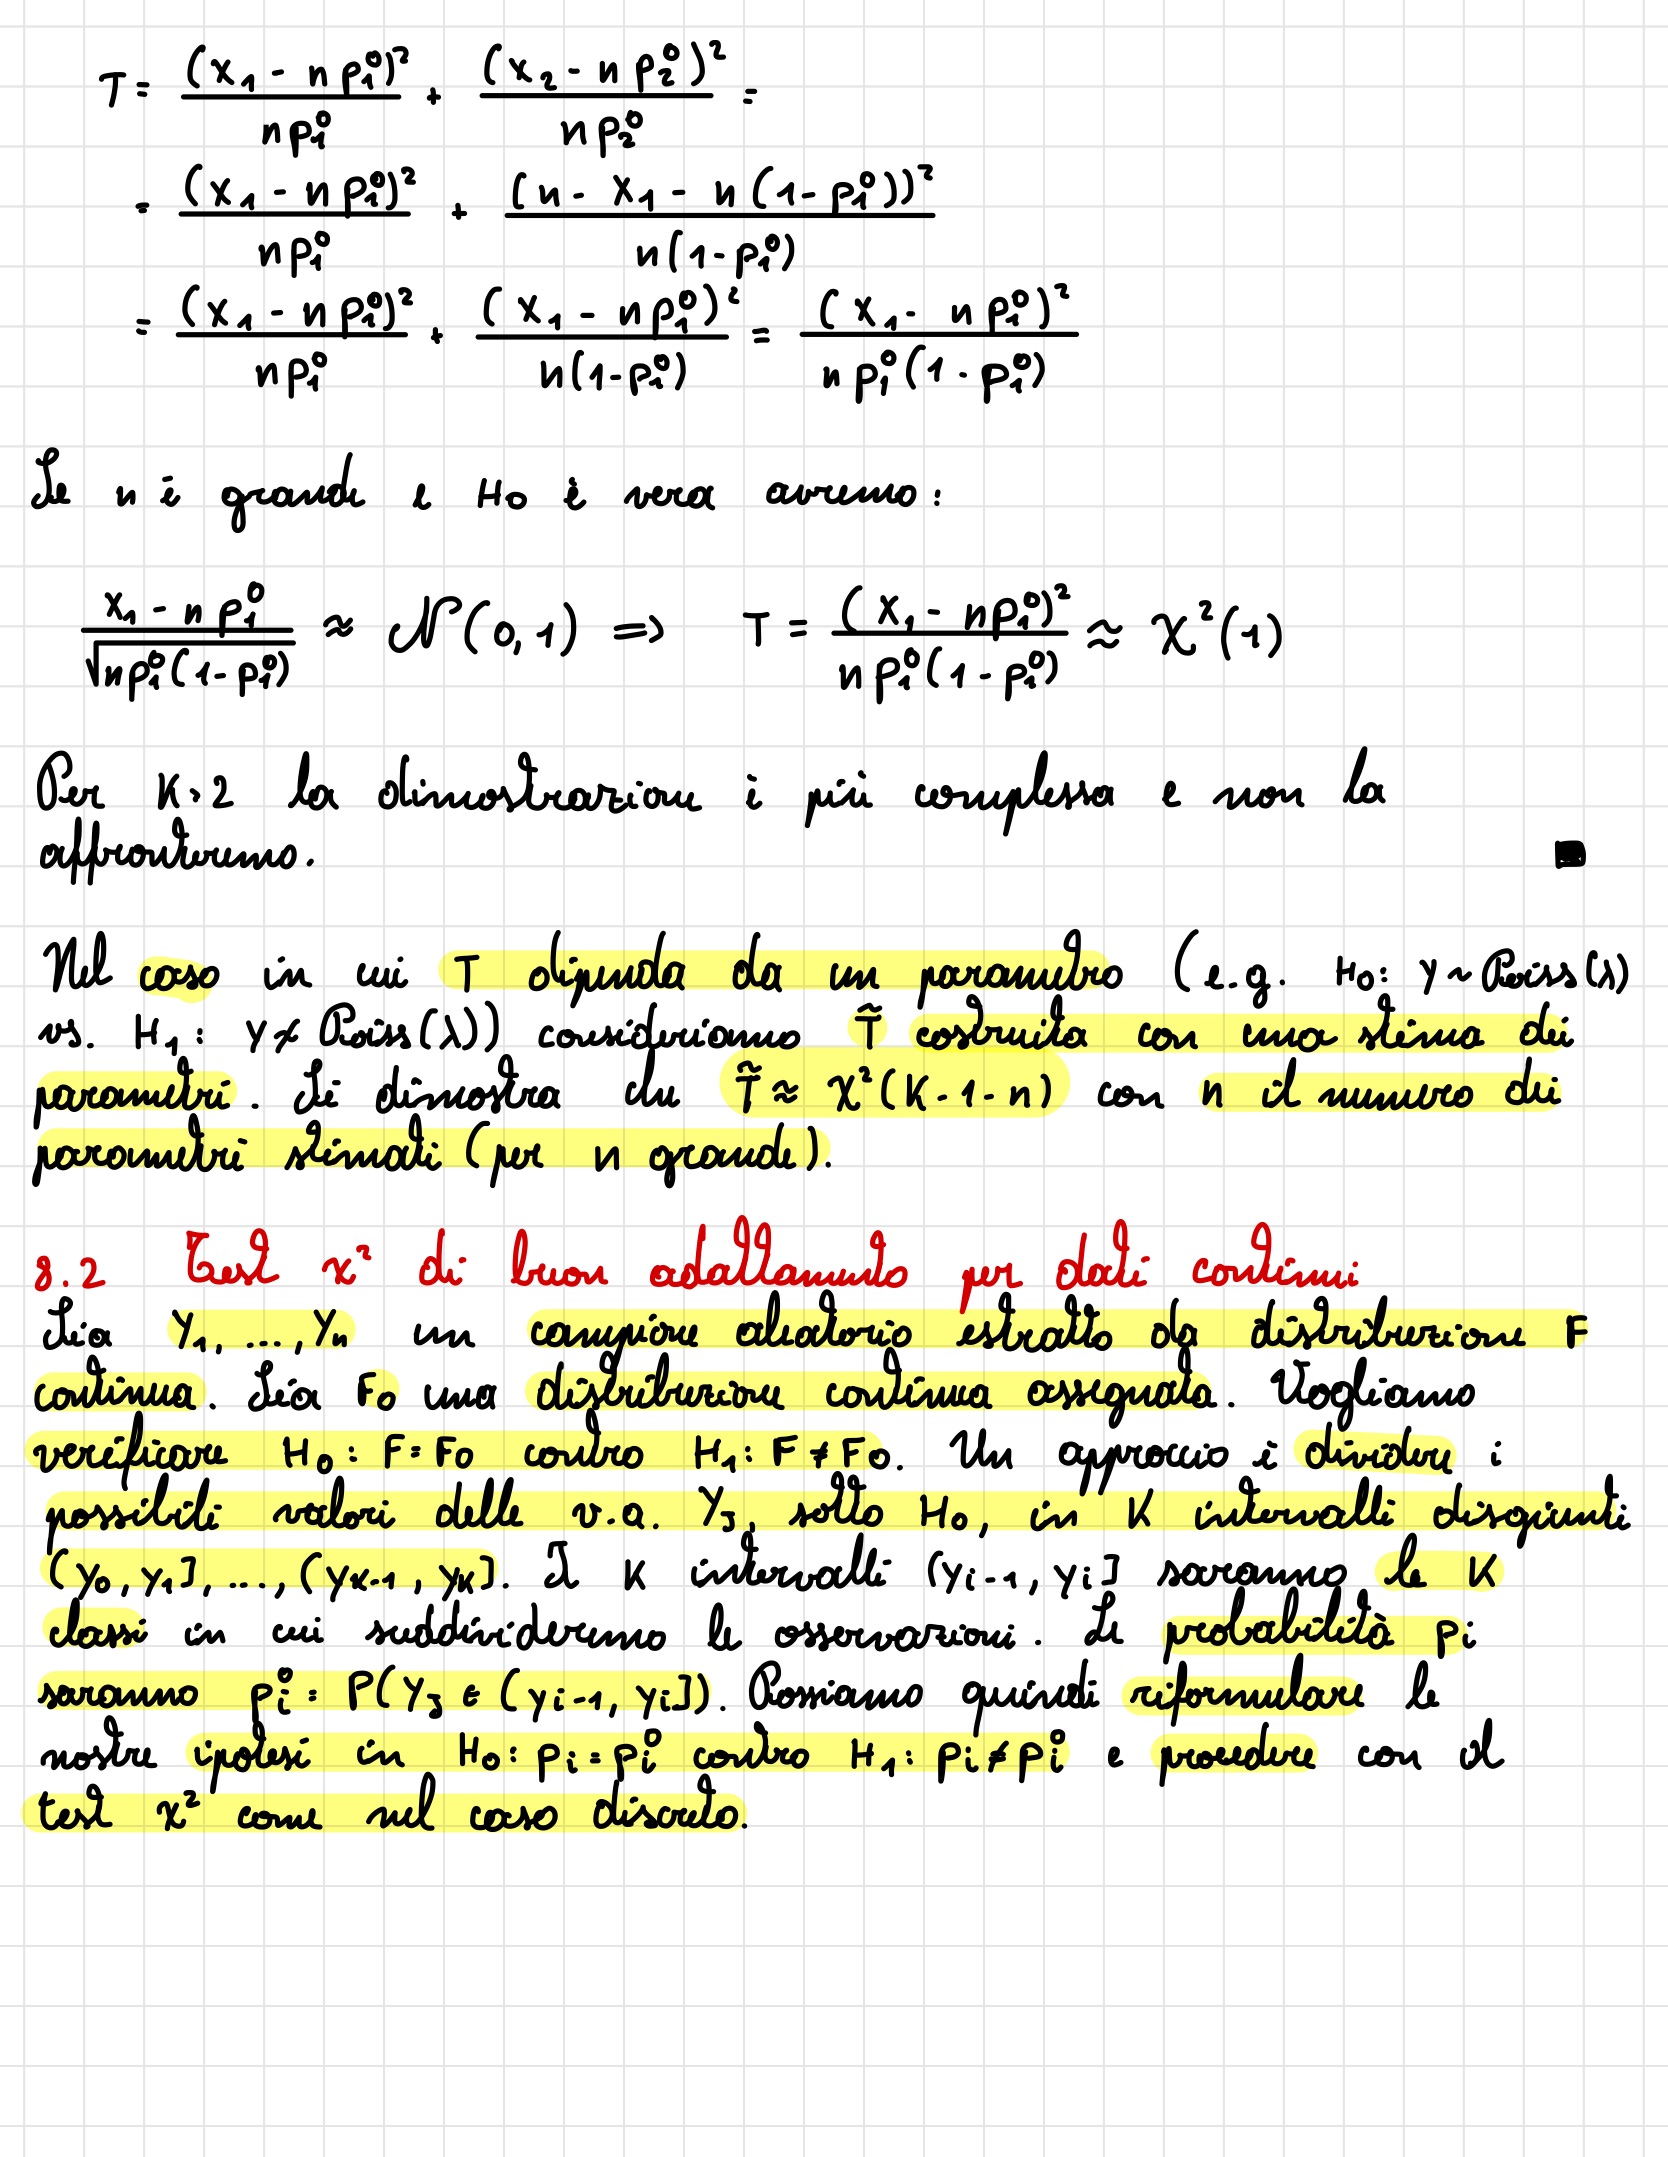 T = (x₁ - np₁⁰)²/np₁⁰ + (x₂ - np₂⁰)²/np₂⁰ =
= (x₁ - np₁⁰)²/np₁⁰ + (n - x₁ - n(1-p₁⁰))²/n(1-p₁⁰)
= (x₁ - np₁⁰)²/np₁⁰ + (x₁ - np₁⁰)²/n(1-p₁⁰) = (x₁ - np₁⁰)²/np₁⁰(1-p₁⁰)
Se n è grande e H₀ è vera avremo:
x₁ - np₁⁰/√np₁⁰(1-p₁⁰) ≈ N(0,1) => T = (x₁ - np₁⁰)²/np₁⁰(1-p₁⁰) ≈ χ²(1)
Per K>2 la dimostrazione è più complessa e non la
affronteremo. ■
Nel caso in cui T dipenda da un parametro (e.g. H₀: Y ~ Poiss(λ)
vs. H₁: Y ≁ Poiss(λ)) consideriamo T̃ costruita con una stima dei
parametri. Si dimostra che T̃ ≈ χ²(K-1-n) con n il numero dei
parametri stimati (per n grande).
8.2 Test χ² di buon adattamento per dati continui
Sia Y₁, ..., Yₙ un campione aleatorio estratto da distribuzione F
continua. Sia F₀ una distribuzione continua assegnata. Vogliamo
verificare H₀: F = F₀ contro H₁: F ≠ F₀. Un approccio è dividere i
possibili valori delle v.a. Yⱼ, sotto H₀, in K intervalli disgiunti
(y₀, y₁], ..., (yK-1, yK]. I K intervalli (yi-1, yi] saranno le K
classi in cui suddivideremo le osservazioni. Le probabilità pi
saranno pi⁰ = P(Yⱼ ∈ (yi-1, yi]). Possiamo quindi riformulare le
nostre ipotesi in H₀: pi = pi⁰ contro H₁: pi ≠ pi⁰ e procedere con il
test χ² come nel caso discreto.